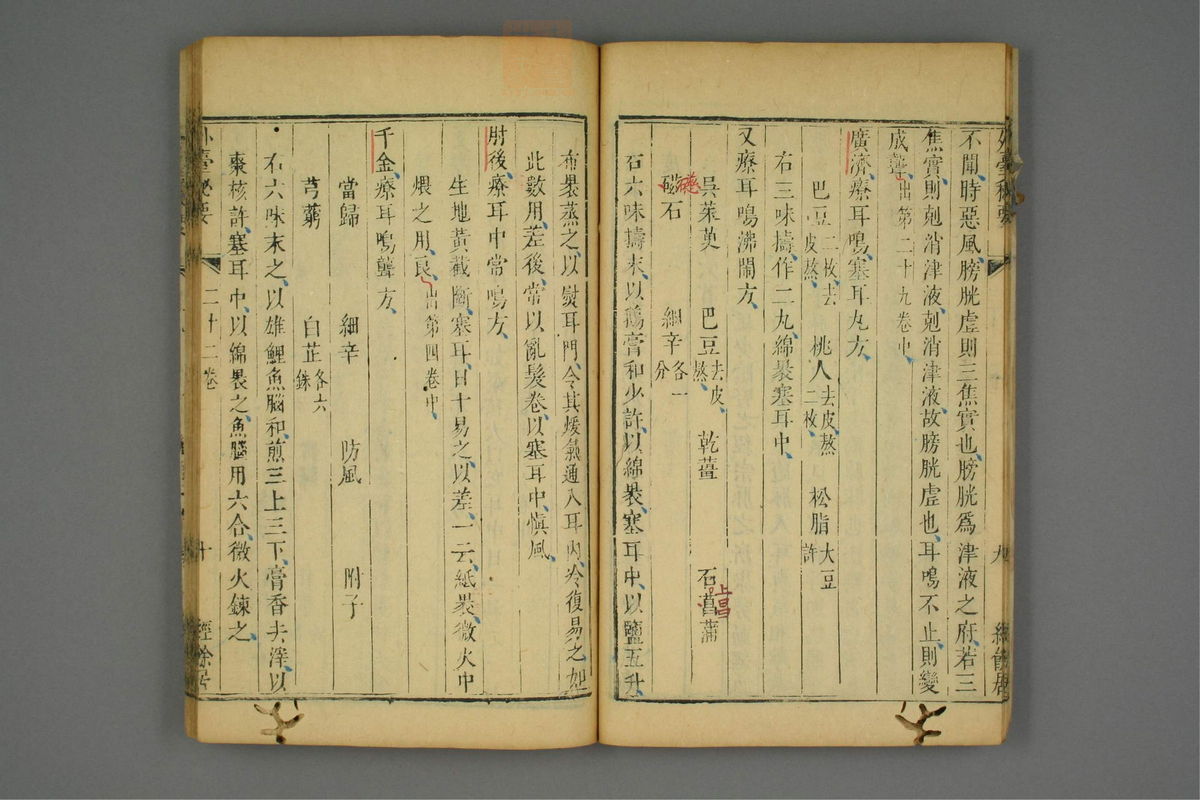 不聞時惡風膀胱虛則三焦實也膀胱爲津液之府若三
焦實則剋消津液剋消津液故膀胱虛也耳鳴不止則變
成聾出第二十九卷中
廣濟療耳鳴塞耳丸方
巴豆二枚去皮熬 桃人去皮熬二枚 松脂大豆許
右三味擣作二丸綿裹塞耳中
又療耳鳴沸鬧方
吳茱萸 巴豆去皮熬 乾薑 石菖蒲
磁石 細辛各一分
右六味擣末以鵝膏和少許以綿裹塞耳中以鹽五升
布裹蒸之以熨耳門令其煖氣通入耳內冷復易之如
此數用差後常以亂髮卷以塞耳中愼風
肘後療耳中常鳴方
生地黃截斷塞耳日十易之以差一云紙裹微火中
煨之用良出第四卷中
千金療耳鳴聾方
當歸 細辛 防風 附子
芎藭 白芷各六銖
右六味末之以雄鯉魚腦和煎三上三下膏香去滓以
棗核許塞耳中以綿裹之魚腦用六合微火鍊之
二十二卷 十 經餘居